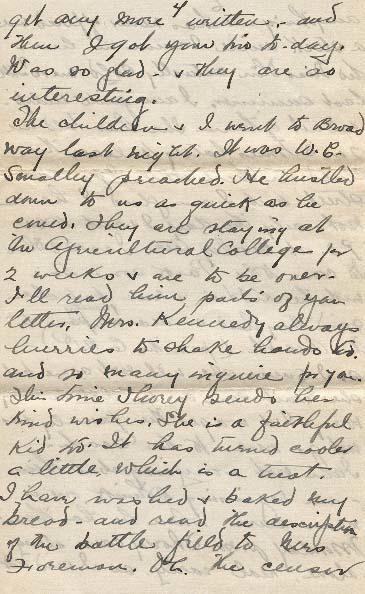 get any more 4 written, - and
then I got your no to-day.
Was so glad - & they are so
interesting.
The children & I went to Broad
way last night. It was W. E.
Smalley preached. He hustled
down to us as quick as he
could. They are staying at
the Agricultural College for
2 weeks & are to be over.
I'll read him parts of your
letter. Mrs. Kennedy always
hurries to shake hands to.
and so many inquire for you.
This time sends her
kind wishes. She is a faithful
kid to. It has turned cooler
a little, which is a treat.
I have washed & baked my
bread - and read the description
of the battle field to Mrs
Foreman. Oh. The censor